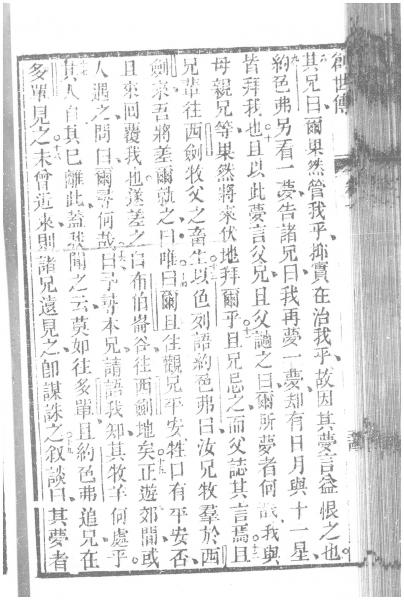 創世傳
其兄曰爾果然管我乎、抑實在治我乎、故因其夢言益恨之也。
約色弗另看一夢告諸兄曰我再夢一夢却有日月與十一星
皆拜我也。且以此夢言父兄、且父讁之曰爾所夢者何哉、我與
母親兄等果然將來伏地拜爾乎。且兄忌之而父誌其言焉。且
兄輩往西劍牧父之畜生。以色列語約色弗曰汝兄牧羣於西
劍、來吾將差爾就之曰唯。曰爾且往觀兄平安牲口有平安否、
且來回覆我也。遂差之自希伯崙谷往西劍地矣。正遊郊間、或
人遇之、問曰爾尋何哉。曰予尋本兄、請語我知其牧羊何處乎。
其人曰其已離此、蓋我聞之云、莫如往多單。且約色弗追兄在
多單見之。未曾近來、則諸兄遠見之、即謀誅之。敘談曰、其夢者